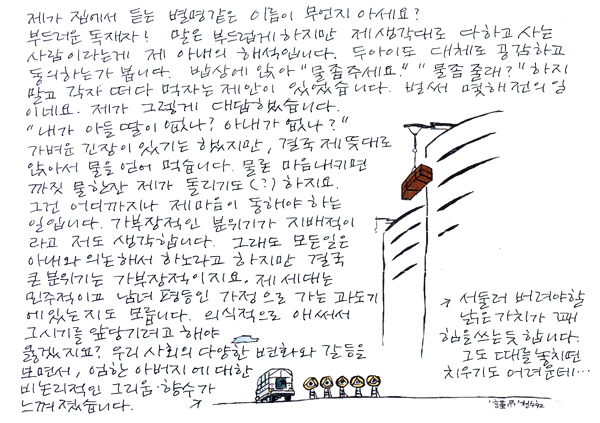 제가 집에서 듣는 별명같은 이름이 무언지 아세요?
부드러운 독재자! 말은 부드럽게 하지만 제 생각대로 다 하고 사는
사람이라는게 제 아내의 해석입니다. 두 아이도 대체로 공감하고
동의하는가 봅니다. 밥상에 앉아 "물 좀 주세요." "물 좀 줄래?" 하지
말고 각자 떠다 먹자는 제안이 있었습니다. 벌써 몇 해 전의 일
이네요. 제가 그렇게 대답했습니다.
"내가 아들 딸이 없나? 아내가 없나?"
가벼운 긴장이 있기는 했지만, 결국 제 뜻대로
앉아서 물을 얻어 먹습니다. 물론 마음내키면
까짓 물 한잔 제가 돌리기도 (?) 하지요.
그건 어디까지나 제 마음이 동해야 하는
일입니다. 가부장적인 분위기가 지배적이
라고 저도 생각합니다. 그래도 모든일은
아내와 의논해서 하노라고 하지만 결국
큰 분위기는 가부장적이지요. 제 세대는
민주적이고 남녀 평등인 가정으로 가는 과도기
에 있는지도 모릅니다. 의식적으로 애써서
그 시기를 앞당기려고 해야
옳겠지요? 우리 사회의 다양한 변화와 갈등을
보면서, 엄한 아버지에 대한
비논리적인 그리움·향수가
느껴졌습니다.
서둘러 버려야할
낡은 가치가 꽤
힘을 쓰는 듯 합니다.
그도 때를 놓치면
치우기도 어려운데…